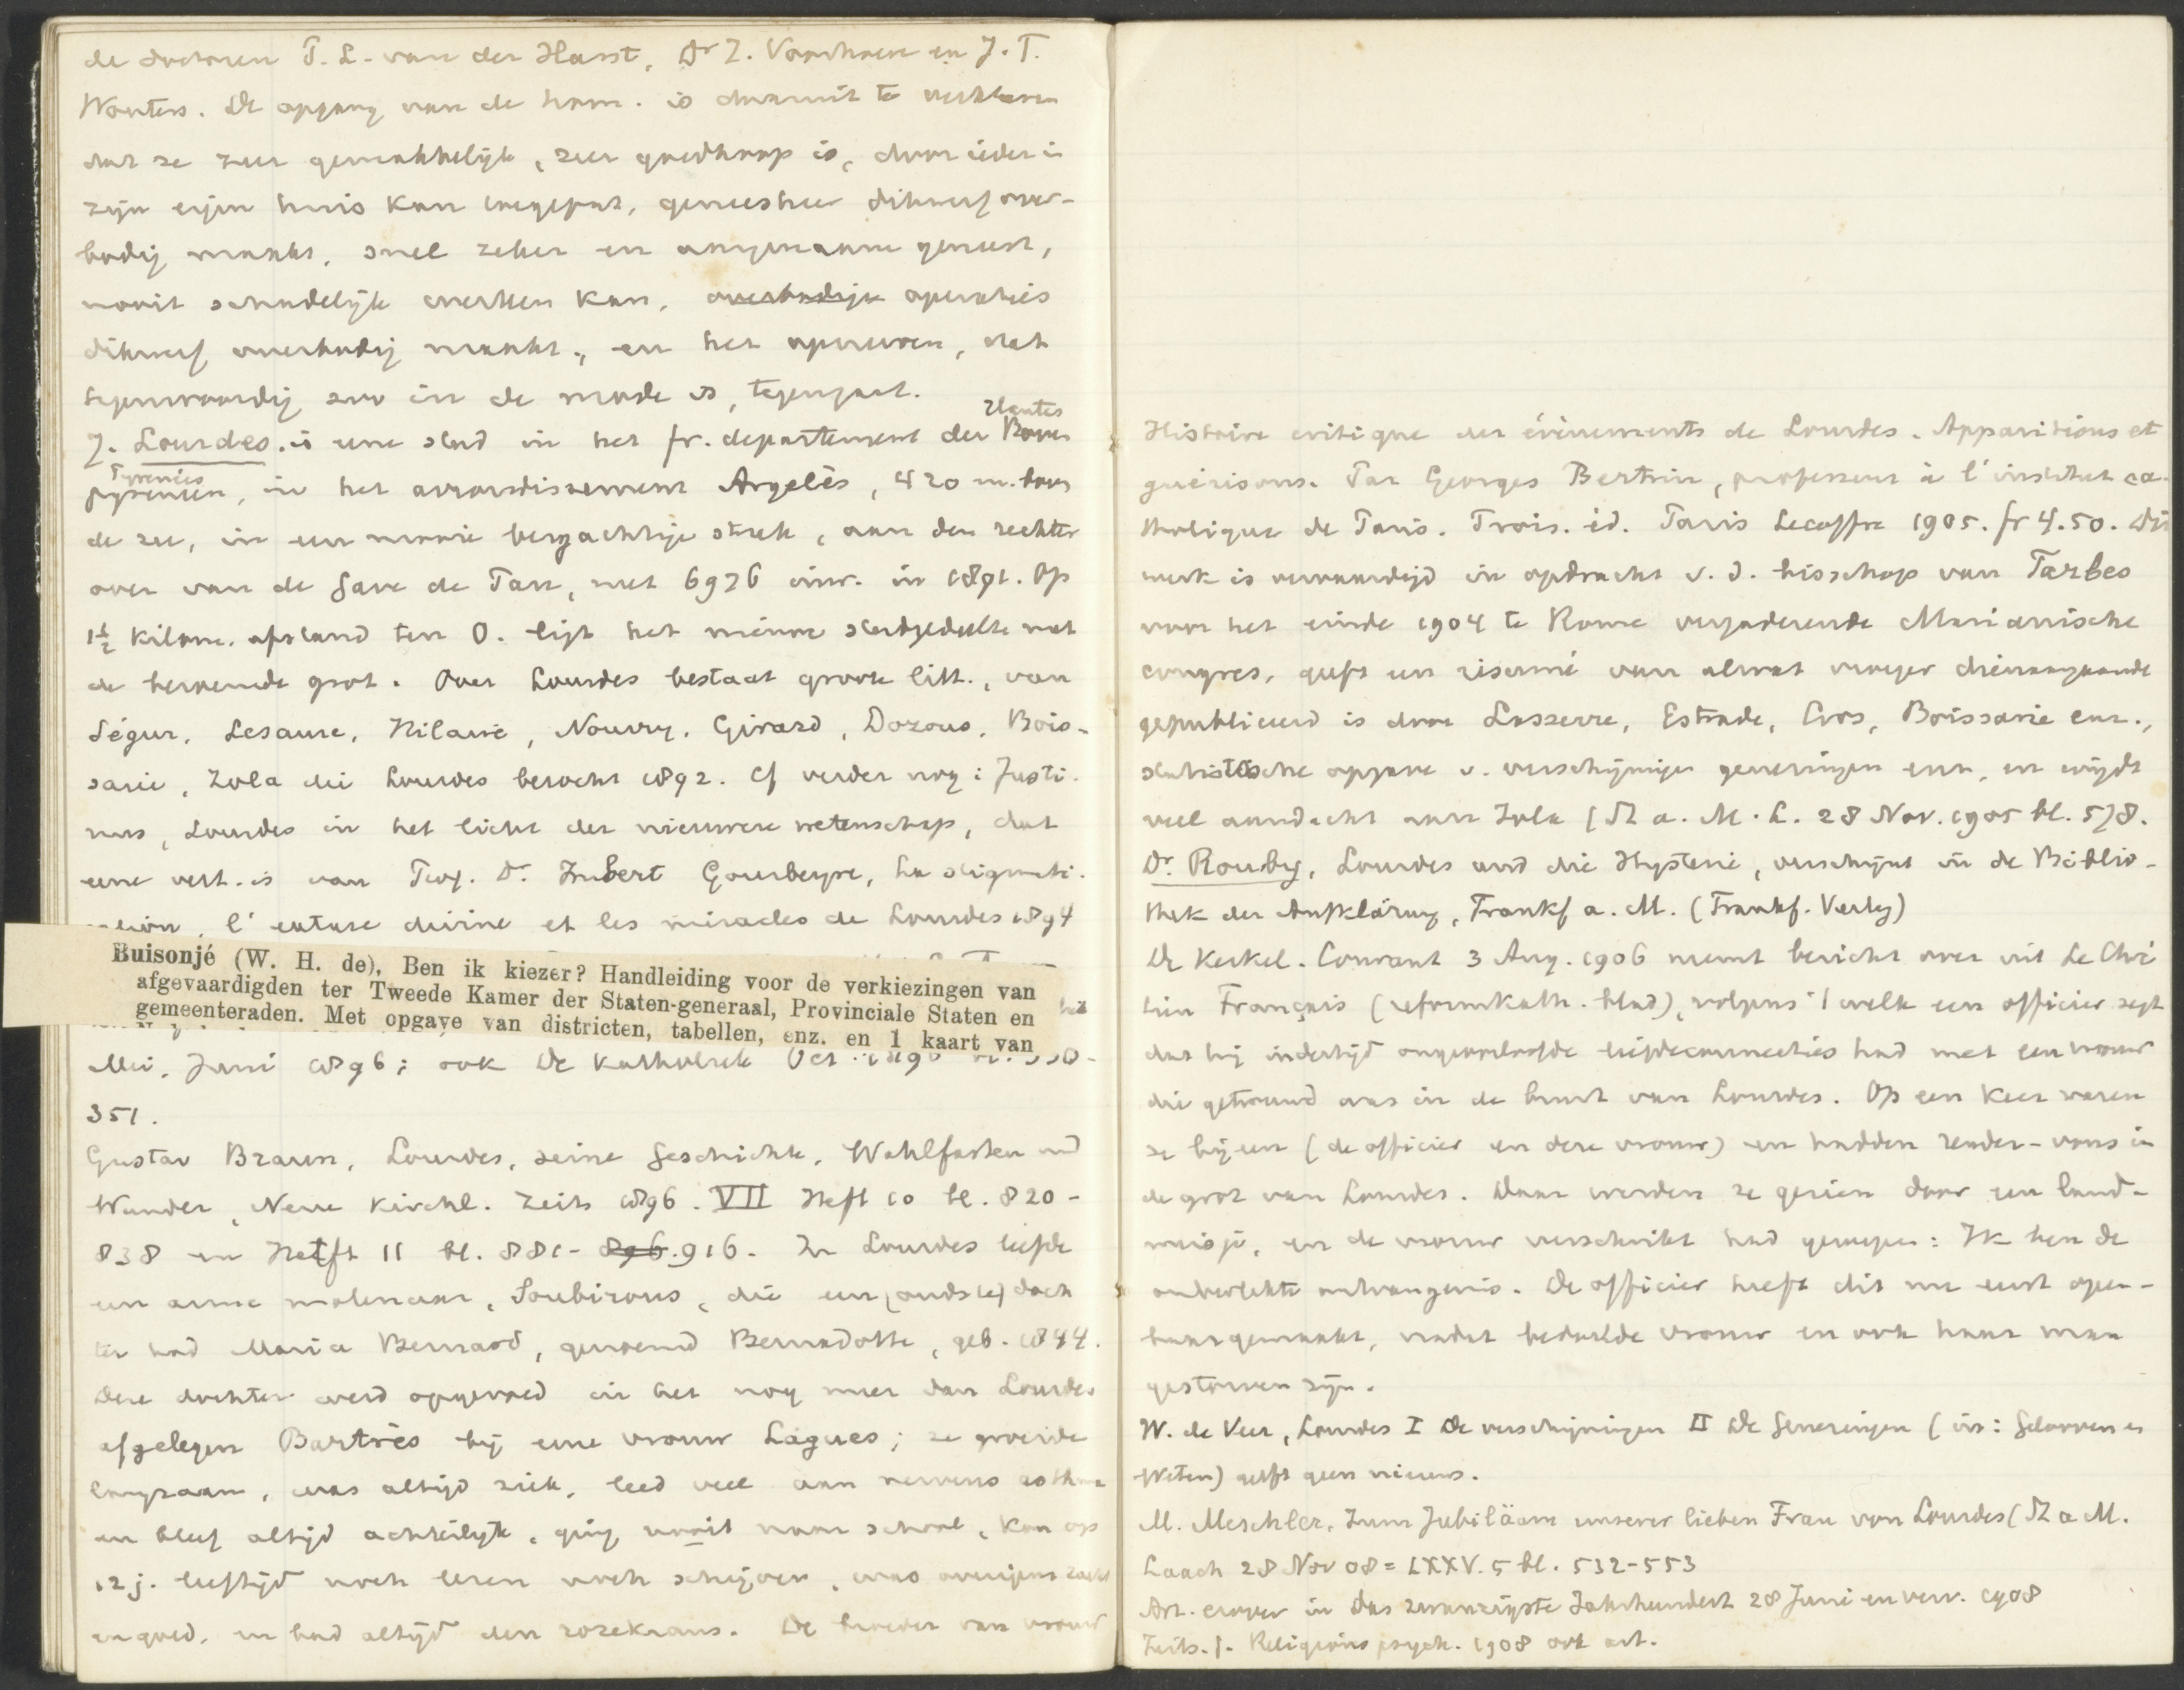 de doctoren T. L. van der Harst, Dr Z. Voorhoeve en J. T.
Wouters. De opgang van de hom. is daaruit te verklaren
dat ze zeer gemakkelijk, zeer goedkoop is, door ieder in
zijn eigen huis kan toegepast, geneesheer dikwerf over-
bodig maakt, snel zeker en aangenaam geneest,
nooit schadelijk werken kan, overbodige operaties
dikwerf overbodig maakt, en het opereren, dat
tegenwoordig zoo in de mode is, tegengaat.
7. Lourdes. is eene stad in het fr. departement der Hautes
Pyrenées, in het arrondissement Argelès, 420 m. boven
de zee, in een mooie bergachtige streek, aan den rechter
oever van de Gave de Pau, met 6976 inw. in 1891. Op
1½ kilom. afstand ten O. ligt het nieuwe stadgedeelte met
de beroemde grot. Over Lourdes bestaat groote litt., van
Ségur, Lesaure, Hilaire, Nourry, Girard, Dozous, Bois-
sarie, Zola die Lourdes bezocht 1892. Cf verder nog: Justi-
nus, Lourdes in het licht der nieuwere wetenschap, dat
eene vert. is van Prof. Dr Imbert Gourbeyre, La stigmati-
sation, l'extase divine et les miracles de Lourdes 1894
Buisonjé (W. H. de), Ben ik kiezer? Handleiding voor de verkiezingen van
afgevaardigden ter Tweede Kamer der Staten-generaal, Provinciale Staten en
gemeenteraden. Met opgave van districten, tabellen, enz. en 1 kaart van
Mei, Juni 1896; ook De Katholiek Oct.
351.
Gustav Braun, Lourdes, seine Geschichte, Wahlfarten und
Wunder, Neue Kirchl. Zeits 1896. VII Heft 10 bl. 820-
838 en Heft 11 bl. 881- 896. 916. In Lourdes leefde
een arme molenaar, Soubirous, die een (oudste) doch
ter had Maria Bernard, genoemd Bernadotte, geb. 1844.
Deze dochter werd opgevoed in het nog meer dan Lourdes
afgelegen Bartrès bij eene vrouw Lagues; ze groeide
langzaam, was altijd ziek, leed veel aan nerveus asthma
en bleef altijd achterlijk, ging nooit naar school, kon op
12 j. leeftijd noch lezen noch schrijven, was overigens zacht
en goed, en had altijd den rozekrans. De broeder van vrouw
Histoire critique des évènements de Lourdes. Apparitions et
guérisons. Par Georges Bertrin, professeur à l'institut ca-
tholique de Paris. Trois. éd. Paris Lecoffre 1905. fr 4.50. Dit
werk is vervaardigd in opdracht v. d. bisschop van Tarbes
voor het einde 1904 te Rome vergaderende Marianische
congres, geeft een résumé van alwat vroeger dienaangaande
gepubliceerd is door Lasserre, Estrade, Cros, Boissarie enz.,
statistische opgave v. verschijningen genezingen enz, en wijdt
veel aandacht aan Zola (St a. M. L. 28 Nov. 1905 bl. 578.
Dr. Rouby, Lourdes und die Hysterie, verschijnt in de Biblio-
thek der Aufklärung, Frankf a. M. (Frankf. Verlag)
De Kerkel. Courant 3 Aug. 1906 neemt bericht over uit Le Chré
tien Français (reformkath. blad), volgens 't welk een officier zegt
dat hij indertijd ongeoorloofde liefdeconnecties had met een vrouw
die getrouwd was in de buurt van Lourdes. Op een keer waren
ze bijeen (de officier en deze vrouw) en hadden rendez-vous in
de grot van Lourdes. Daar werden ze gezien door een land-
meisje, en de vrouw verschrikt had geroepen: Ik ben de
onbevlekte ontvangenis. De officier heeft dit nu eerst open-
baargemaakt, nadat bedoelde vrouw en ook haar man
gestorven zijn.
W. de Veer, Lourdes I De verschijningen II De Genezingen (in: Gelooven en
Weten) geeft geen nieuws.
M. Meschler, Zum Jubiläum unserer lieben Frau von Lourdes (St a M.
Laach 28 Nov 08 = LXXV. 5 bl. 532-553
Art. erover in Das zwanzigste Jahrhundert 28 Juni en verv. 1908
Zeits. f. Religionspsych. 1908 ook art.